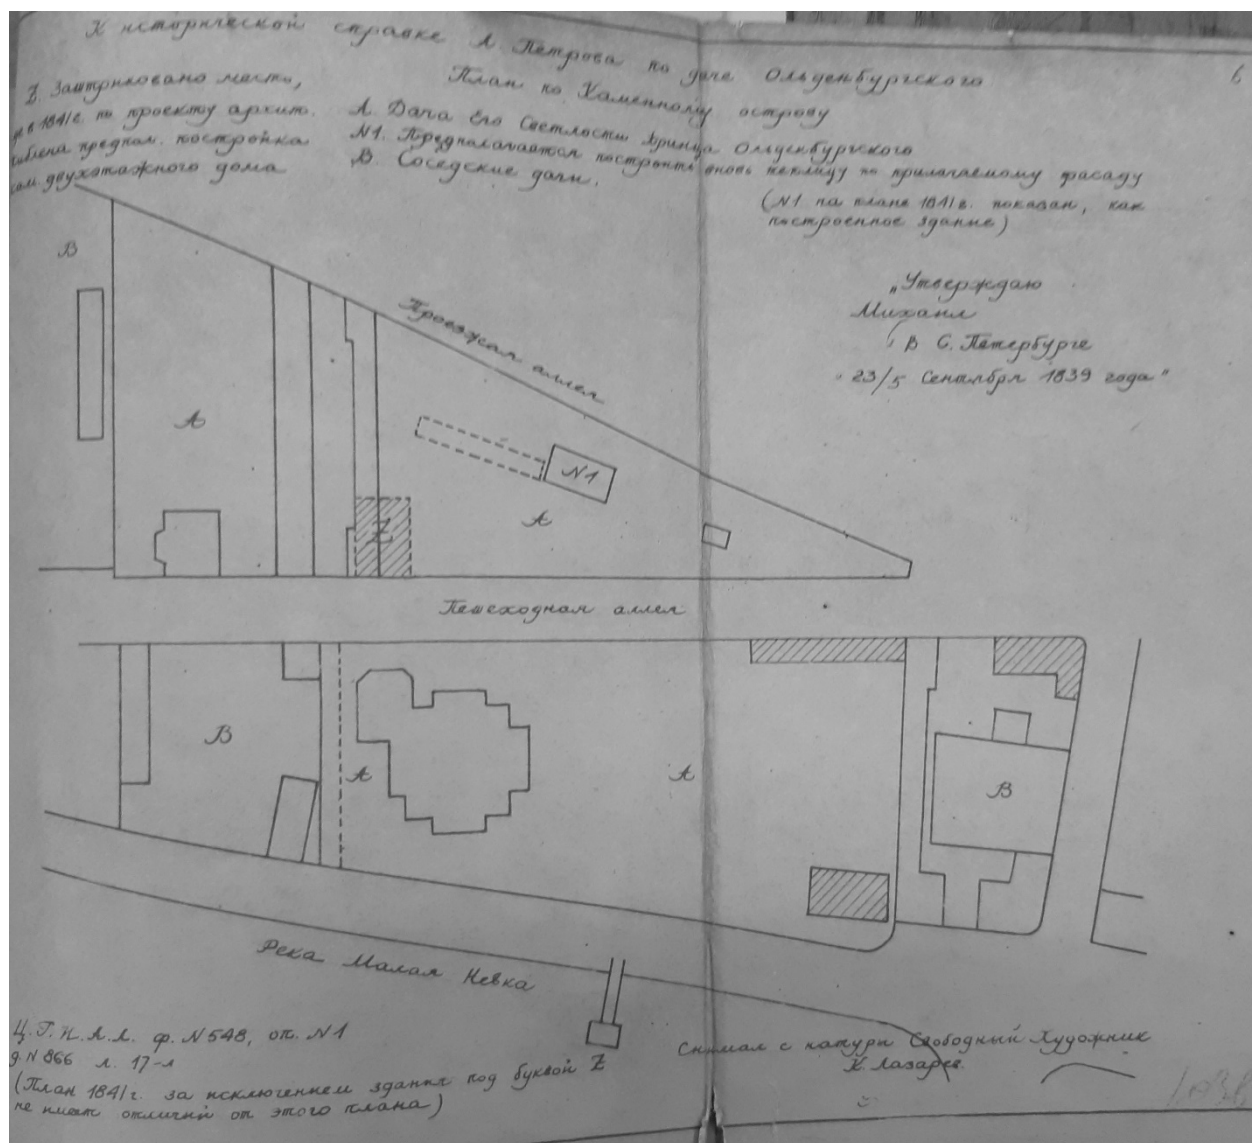 К исторической справке А. Петрова по даче Ольденбургского
6
План по Каменному острову
Z. Заштриховано место,
в 1841 г. по проекту архит.
предпол. постройка
двухэтажного дома
А. Дача Его Светлости Принца Ольденбургского
N1. Предполагается построить вновь теплицу по прилагаемому фасаду
В. Соседские дачи.
(N1 на плане 1841 г. показан, как
построенное здание)
„Утверждаю
Михаил
В С. Петербурге
23/5 Сентября 1839 года"
В
А
Проезжая аллея
N1
А
Z
Пешеходная аллея
В
А
А
В
Река Малая Невка
Z
Ц.Г.И.А.Л. ф. N 548, оп. N1
д. N 866 л. 17-л
(План 1841 г. за исключением здания под буквой Z
не имеет отличий от этого плана)
Снимал с натуры Свободный Художник
К. Лазарев.